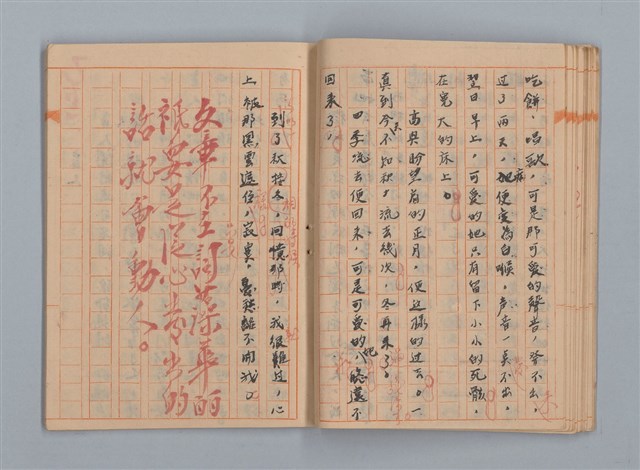 吃餅，唱歌，可是那可愛的聲音，發不出，
过了兩天，她便變為白喉，声音一美不出，
翌日早上，可愛的她只有留下小小的死骸，
在兒大的床上。
高興盼望着的正月，便這樣的过去。一
直到今天不知秋，流去幾次，冬再来了。
四季流去便回来，可是可愛的八 她 還不
回来了，
到了秋接冬，回憶那時，我很難过，心
上被那黑雲遮住，寂寞，憂愁離不開我。
文章不在詞藻華麗
祇要是從心發出的
話就會動人。